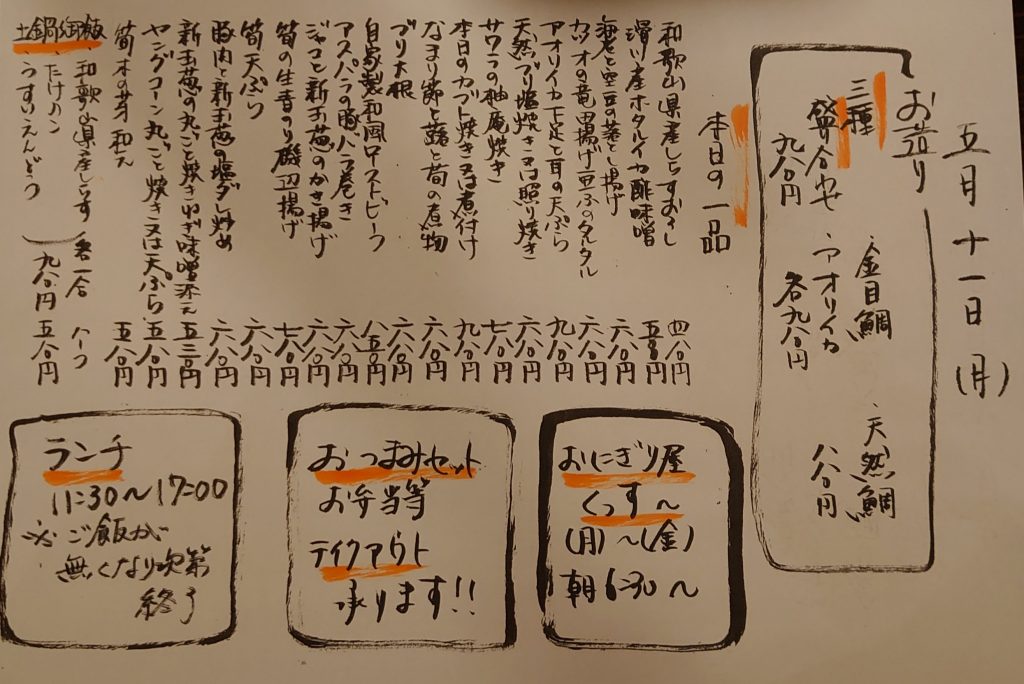 五月十一日(月)
お造り
・金目鯛
・天然鯛
三種
盛合せ
・アオリイカ
八八〇円
九八〇円
各九八〇円
本日の一品
和歌山県産しらすおろし 四八〇円
滑川産ホタルイカ酢味噌 五八〇円
海老と空豆の落とし揚げ 六八〇円
カツオの竜田揚げ豆ふのタルタル 六八〇円
アオリイカ下足と耳の天ぷら 九八〇円
天然ブリ塩焼き又は照り焼き 六八〇円
サワラの柚庵焼き 七八〇円
本日のカブト焼き又は煮付け 九八〇円
なまり節と蕗と筍の煮物 六八〇円
ブリ大根 六八〇円
自家製和風ローストビーフ 八八〇円
アスパラの豚バラ巻き 六八〇円
ジャコと新玉葱のかき揚げ 六八〇円
筍の生青のり磯辺揚げ 七八〇円
筍天ぷら 六八〇円
豚肉と新玉葱の塩ダレ炒め 六八〇円
新玉葱の丸ごと焼きねぎ味噌添え 五三〇円
ヤングコーン丸ごと焼き又は天ぷら 五八〇円
筍木の芽和え 五八〇円
土鍋御飯
・和歌山県産しらす
・たけのこ
・うすいえんどう
各一合 九八〇円
ハーフ 五八〇円
おにぎり屋
くっす〜
(月)〜(金)
朝6:30〜
おつまみセット
お弁当等
テイクアウト
承ります!!
ランチ
11:30〜17:00
※ご飯が
無くなり次第
終了